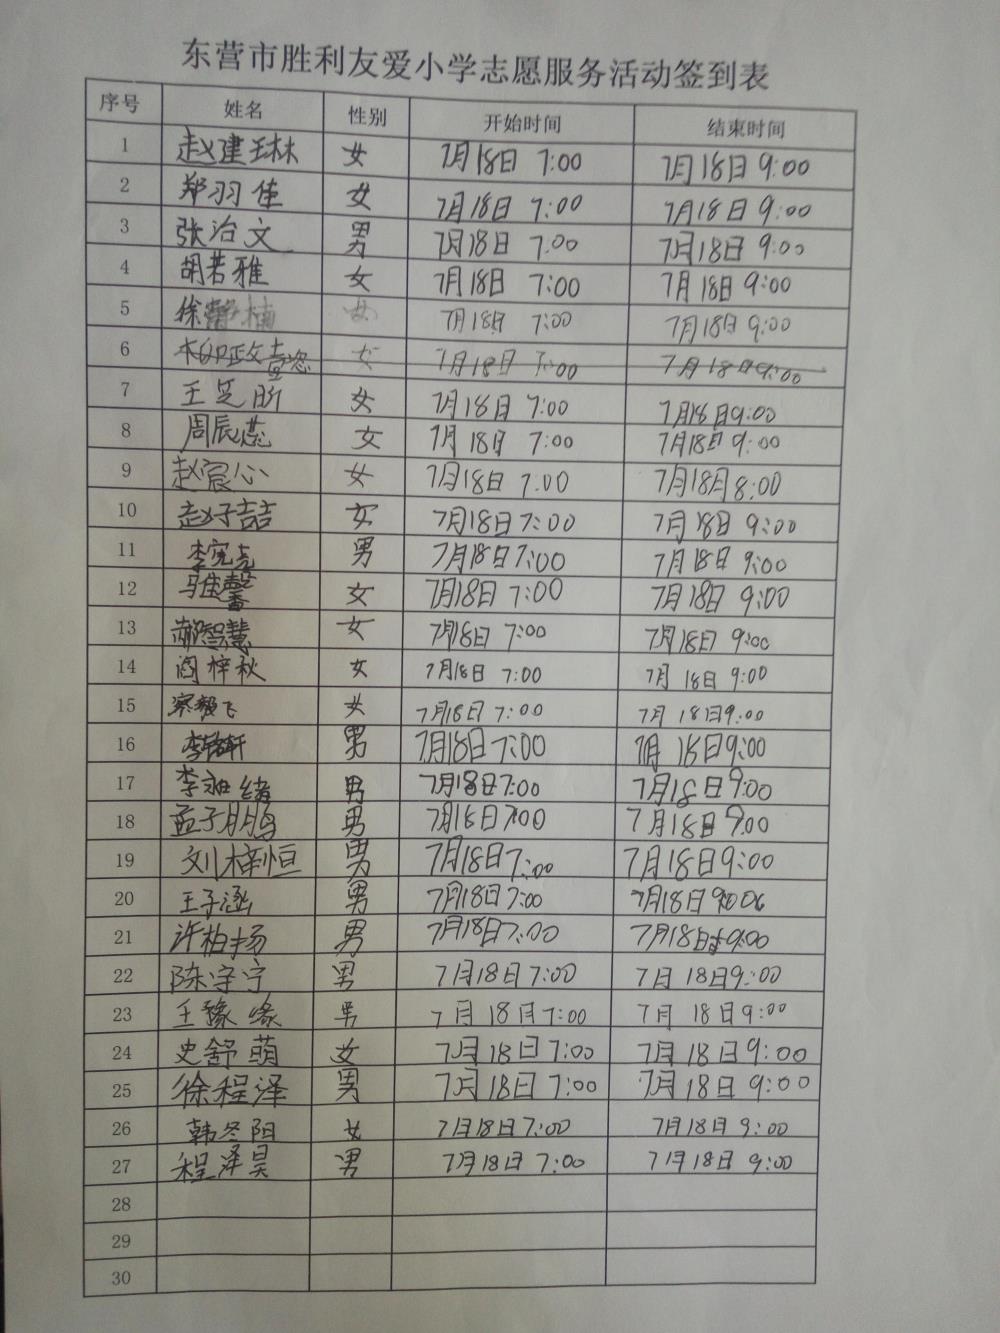 东营市胜利友爱小学志愿服务活动签到表
序号 姓名 性别 开始时间 结束时间
1 赵建琳 女 7月18日 7:00 7月18日 9:00
2 郑羽佳 女 7月18日 7:00 7月18日 9:00
3 张治文 男 7月18日 7:00 7月18日 9:00
4 胡若雅 女 7月18日 7:00 7月18日 9:00
5 徐静楠 女 7月18日 7:00 7月18日 9:00
6 女 7月18日 7:00 7月18日9:00
7 王芝昕 女 7月18日 7:00 7月18日9:00
8 周辰蕊 女 7月18日 7:00 7月18日 9:00
9 赵宸心 女 7月18日 7:00 7月18月8:00
10 赵子喆 女 7月18日7:00 7月18日 9:00
11 李宪亮 男 7月18日7:00 7月18日 9:00
12 马佳馨 女 7月18日 7:00 7月18日 9:00
13 郝智慧 女 7月18日 7:00 7月18日 9:00
14 阎梓秋 女 7月18日 7:00 7月 18日 9:00
15 飞 女 7月18日 7:00 7月 18日9:00
16 李轩 男 7月18日7:00 7月 18日9:00
17 李昶绪 男 7月18日7:00 7月18日9:00
18 孟子鹏 男 7月18日7:00 7月18日 9:00
19 刘梓恒 男 7月18日7:00 7月18日9:00
20 王子涵 男 7月18日7:00 7月18日
21 许柏扬 男 7月18日7:00 7月18日9:00
22 陈守宁 男 7月18日7:00 7月18日9:00
23 王豫缘 男 7月18月7:00 7月 18日9:00
24 史舒萌 女 7月18日7:00 7月18日9:00
25 徐程泽 男 7月18日 7:00 7月18日 9:00
26 韩冬阳 女 7月18日7:00 7月18日 9:00
27 程泽昊 男 7月18日 7:00 7月18日 9:00
28
29
30